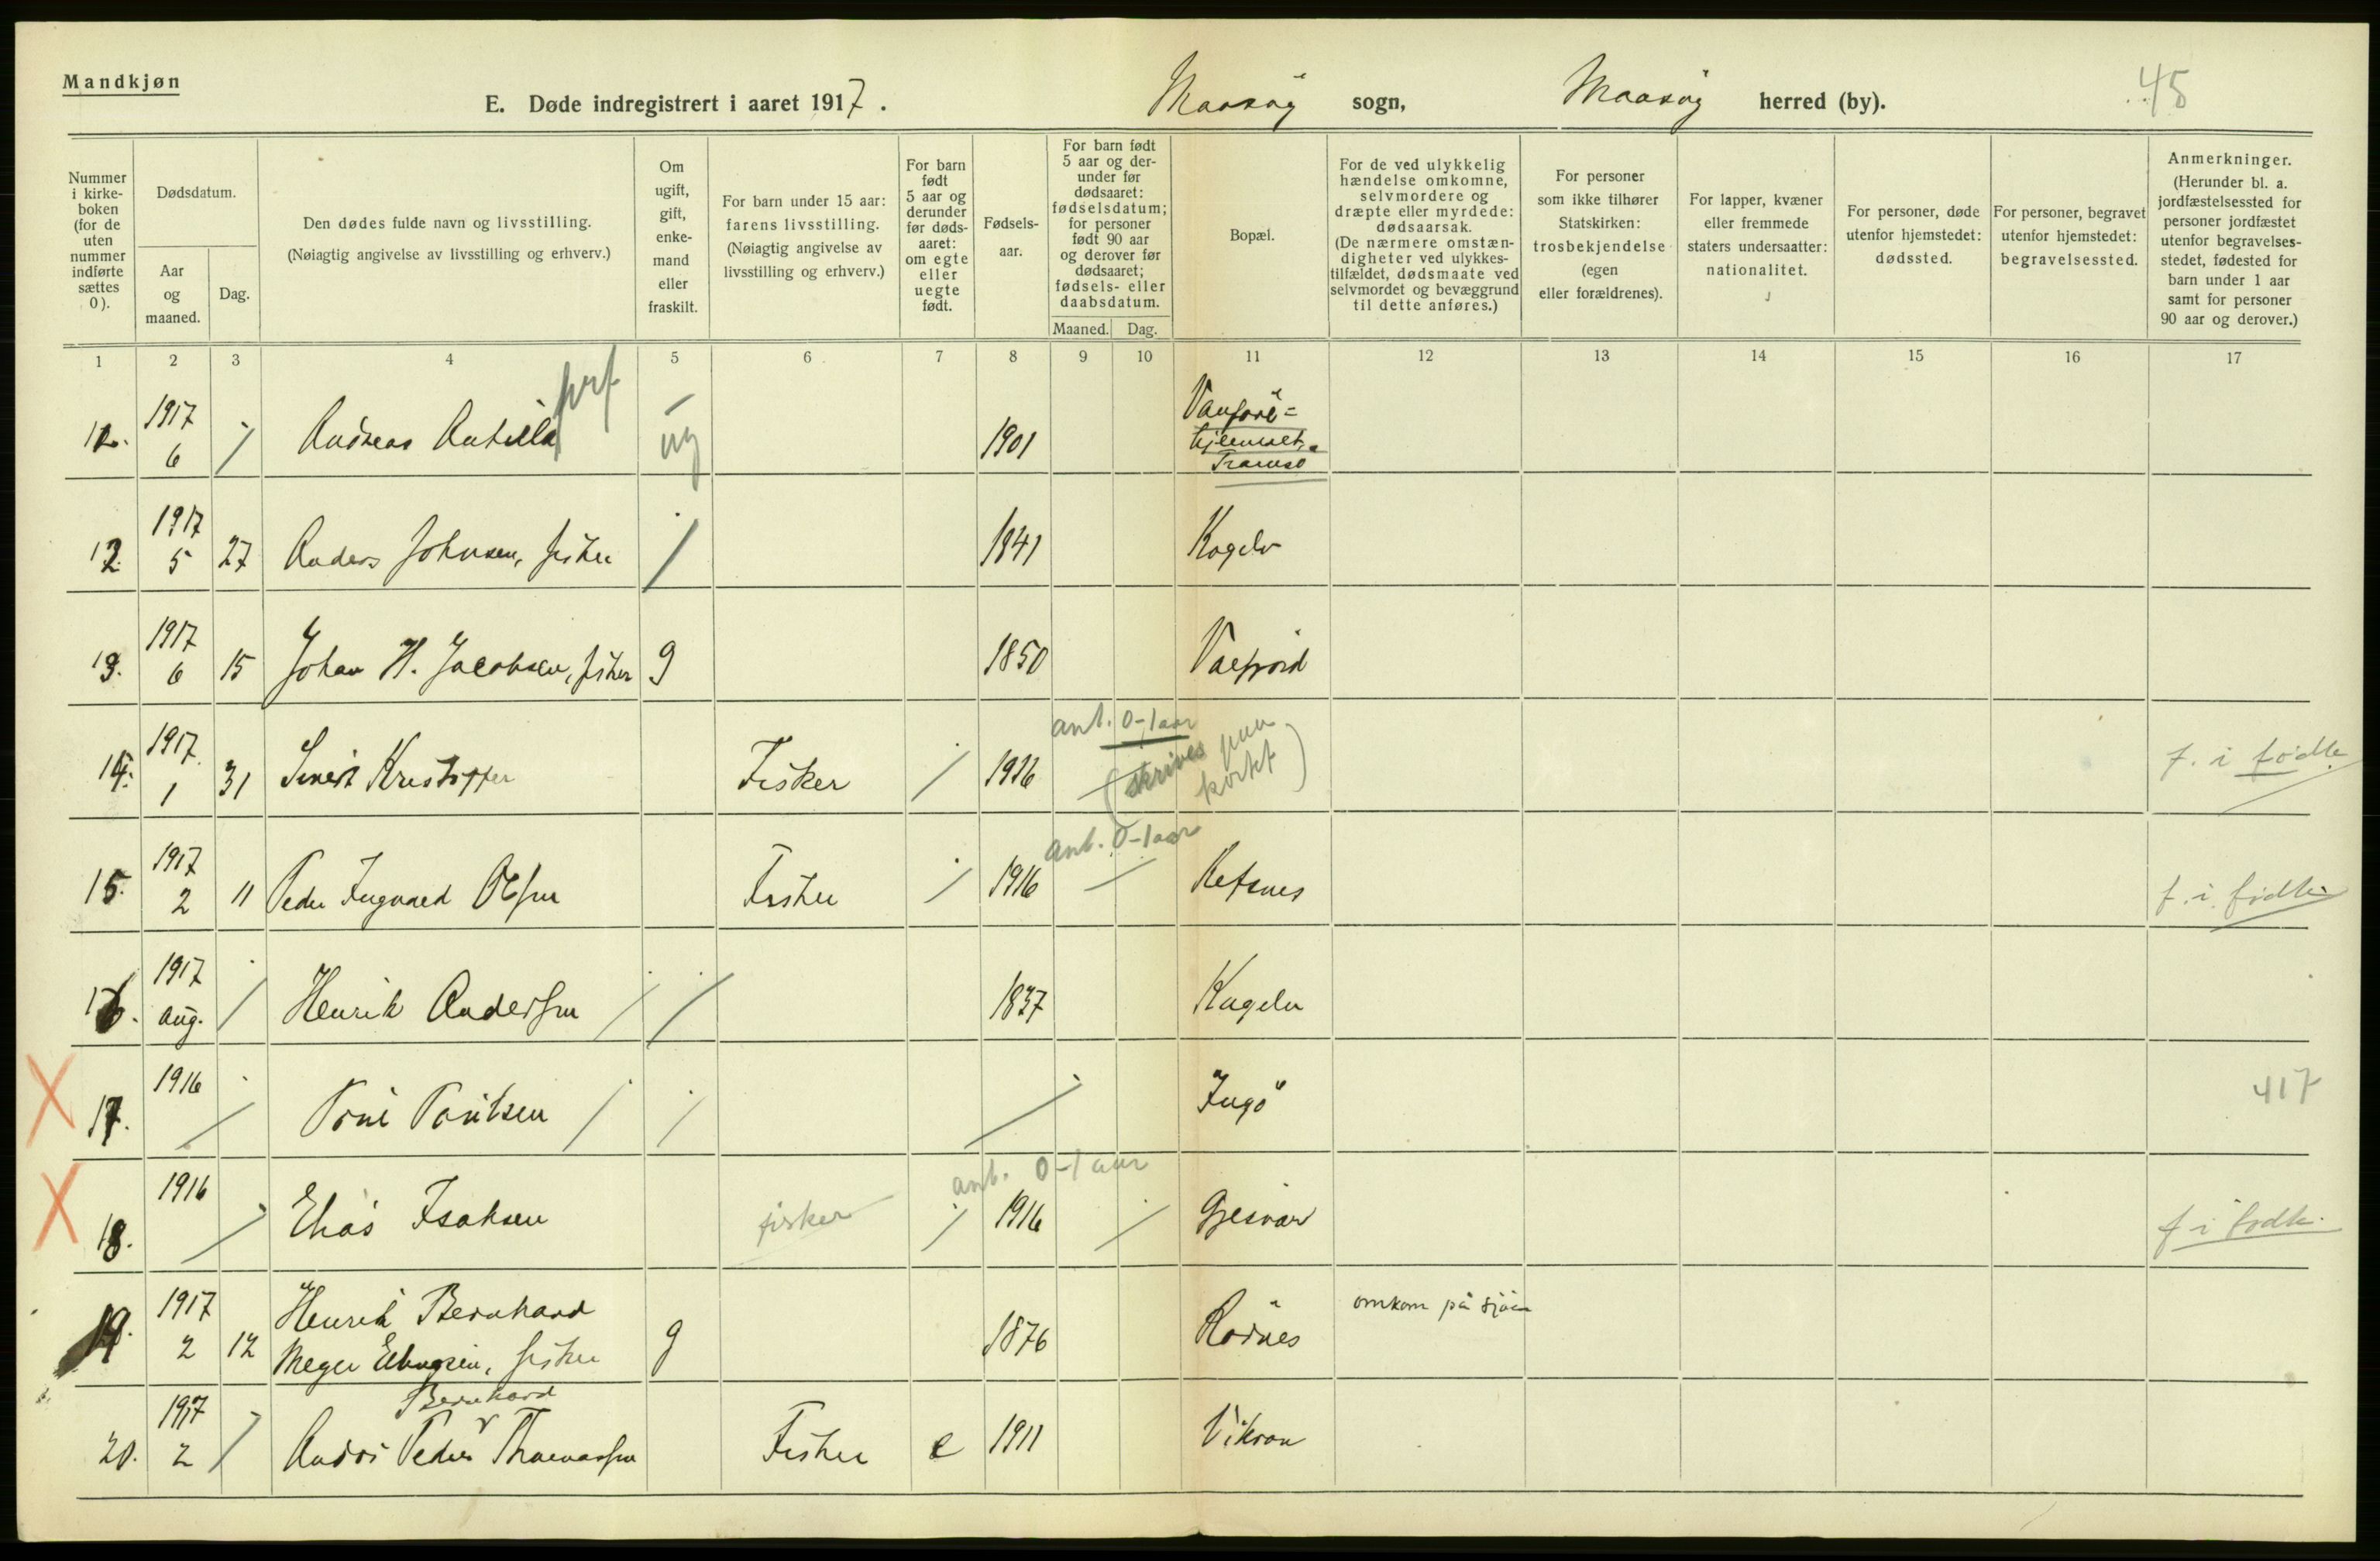 Mandkjøn
E. Døde indregistrert i aaret 1917.
Maasøy sogn,
Maasøy herred (by).
45
Nummer i kirke-boken (for de uten nummer indførte sættes 0).
Dødsdatum.
Aar og maaned.
Dag.
Den dødes fulde navn og livsstilling.
(Nøiagtig angivelse av livsstilling og erhverv.)
Om ugift, gift, enke-mand eller fraskilt.
For barn under 15 aar: farens livsstilling.
(Nøiagtig angivelse av livsstilling og erhverv.)
For barn født 5 aar og derunder før døds-aaret: om egte eller uegte født.
Fødsels-aar.
For barn født 5 aar og der-under før dødsaaret: fødselsdatum; for personer født 90 aar og derover før dødsaaret; fødsels- eller daabsdatum.
Maaned. Dag.
Bopæl.
For de ved ulykkelig hændelse omkomne, selvmordere og dræpte eller myrdede: dødsaarsak.
(De nærmere omstæn-digheter ved ulykkes-tilfældet, dødsmaate ved selvmordet og bevæggrund til dette anføres.)
For personer som ikke tilhører Statskirken: trosbekjendelse (egen eller forældrenes).
For lapper, kvæner eller fremmede staters undersaatter: nationalitet.
For personer, døde utenfor hjemstedet: dødssted.
For personer, begravet utenfor hjemstedet: begravelsessted.
Anmerkninger.
(Herunder bl. a. jordfæstelsessted for personer jordfæstet utenfor begravelses-stedet, fødested for barn under 1 aar samt for personer 90 aar og derover.)
1 2 3 4 5 6 7 8 9 10 11 12 13 14 15 16 17
1917 6 Andreas Antilla ug 1901 Vanføre= hjemmet, Tromsø
12. 1917 5 27 Anders Johnsen, fisker 1841 Kogelv
13. 1917 6 15 Johan H. Jacobsen, fisker g 1850
14. 1917 1 31 Kristoffer Fisker 1916 ant. 0-1 aar (skrives paa kortet) f. i fødte
15. 1917 2 11 Peder Ingvard Olsen Fisker 1916 ant. 0-1 aar Refsnes f. i fødte
16. 1917 aug. Henrik Andersen 1837
X 17. 1916 Ingö 417
X 18. 1916 Elias Isaksen fisker ant. 0-1 aar 1916 Gjesvær f i fødte
19. 1917 2 12 Henrik Bernhard Meyer fisker g 1876 omkom på sjøen
20. 1917 2 Bernhard Peder Thomassen Fisker e 1911 Vikran